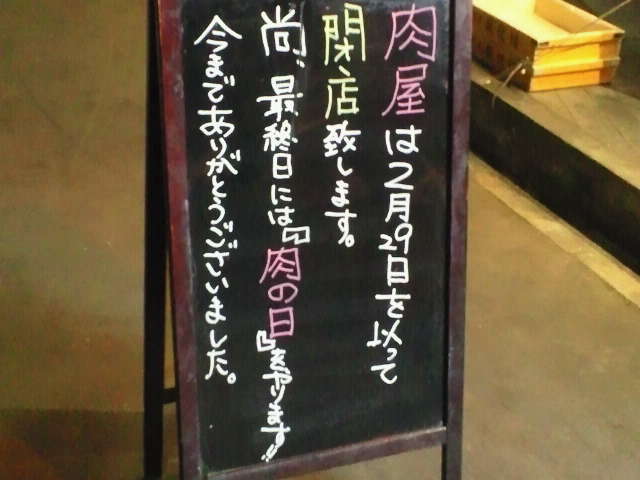 肉屋は2月29日を以って
閉店致します。
尚、最終日には『肉の日』をやります!!
今までありがとうございました。